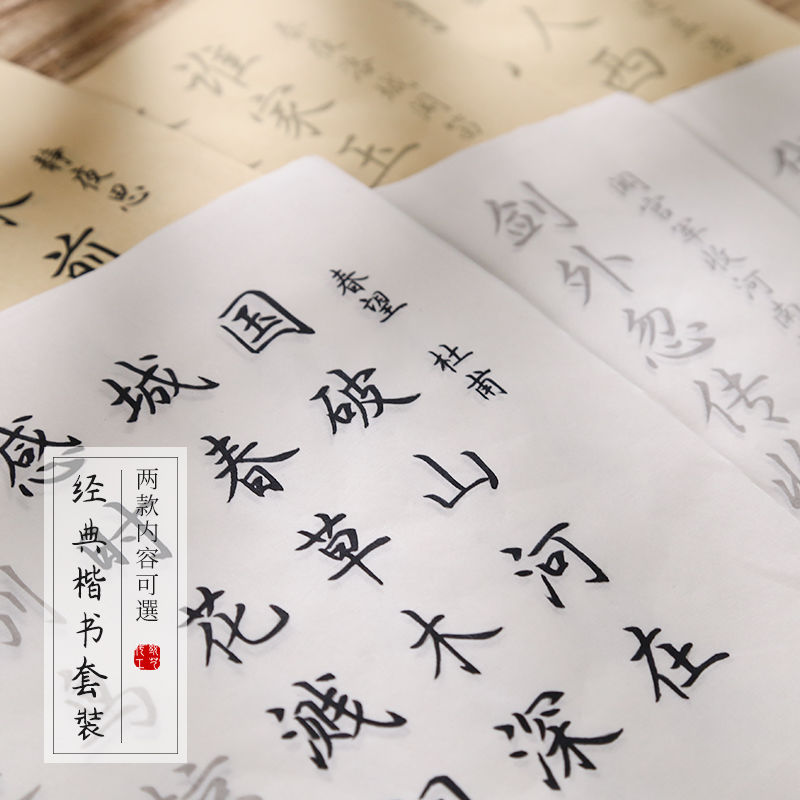 谁家玉
春夜洛城闻笛
人西
静夜思
前
闻官军收河南
剑外忽传
春望
杜甫
国破山河在
城春草木深
感时花溅
两款内容可選
经典楷书套装